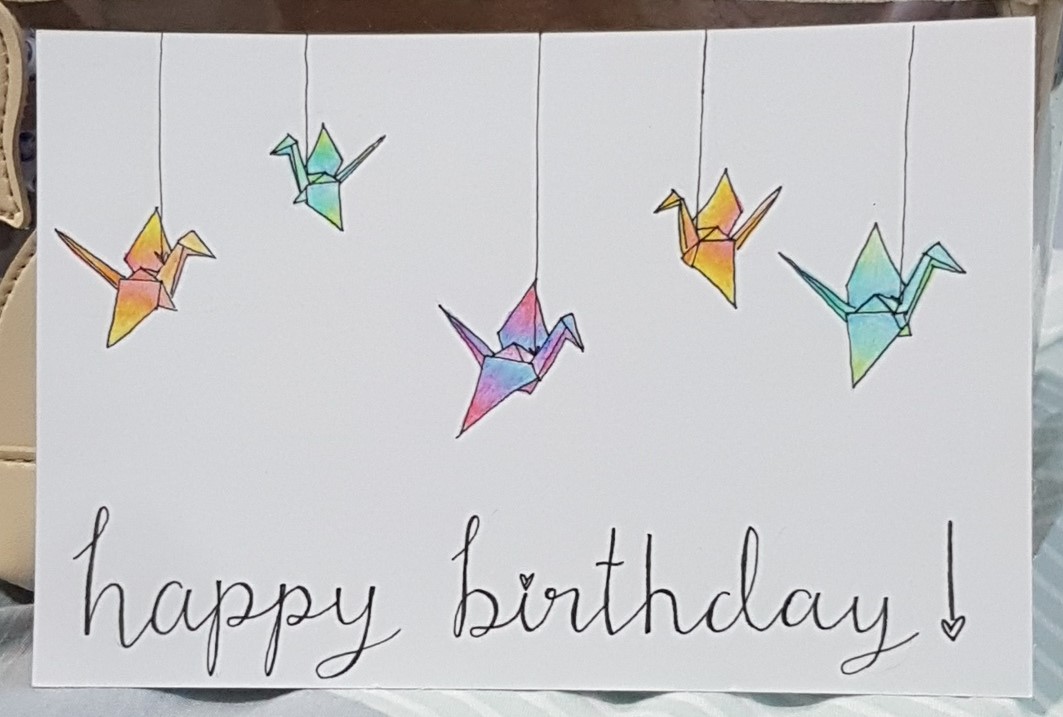 happy birthday!